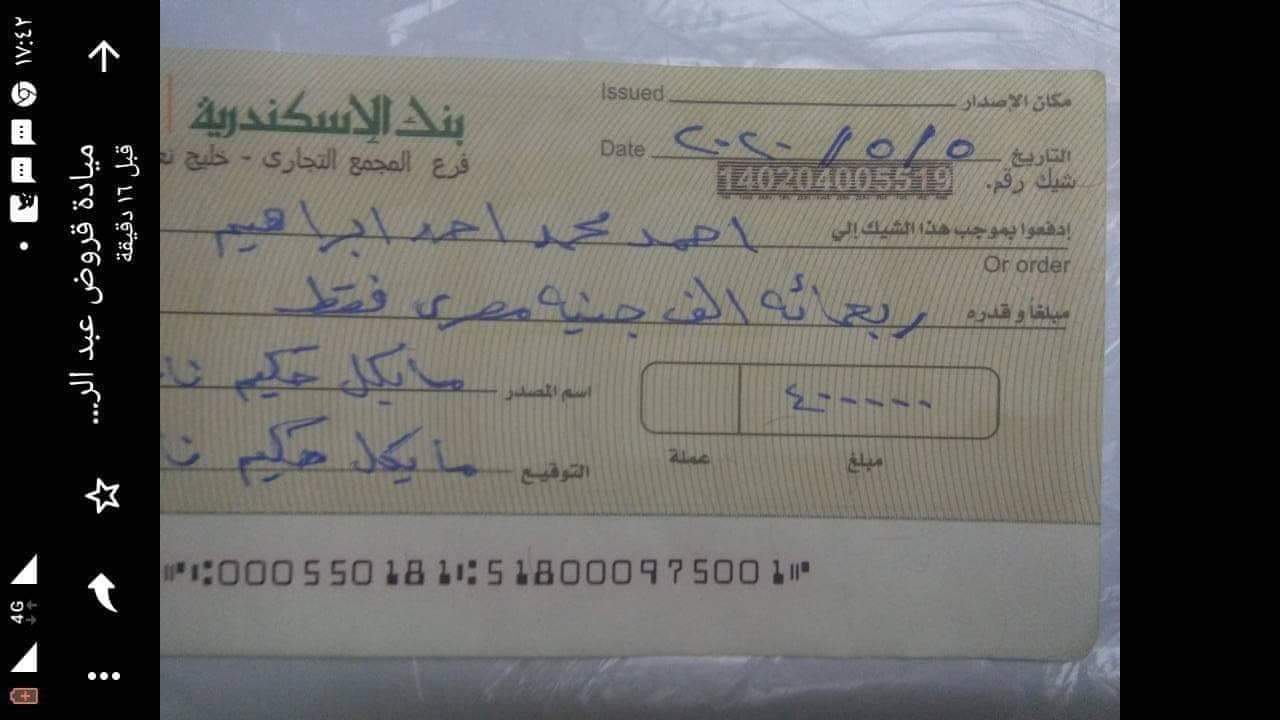 ١٧:٤٢
ميادة قروض عبد الر...
قبل ١٦ دقيقة
4G
بنك الإسكندرية
فرع المجمع التجارى - خليج
Issued مكان الإصدار
Date ٢٠٢٠/٥/٥ التاريخ
شيك رقم. 140204005519
إدفعوا بموجب هذا الشيك إلي احمد محمد احمد ابراهيم
Or order
مبلغا و قدره ربعمائه الف جنيه مصرى فقط
٤٠٠٠٠٠
مبلغ عملة
اسم المصدر مايكل حكيم
التوقيع مايكل حكيم
⑈⑆000550181⑆518000975001⑈